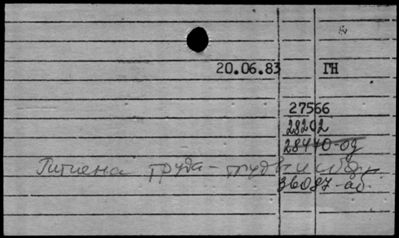 20.06.83 ГН
27566
28202
28440-од
Гигиена труда -
36087-аб.